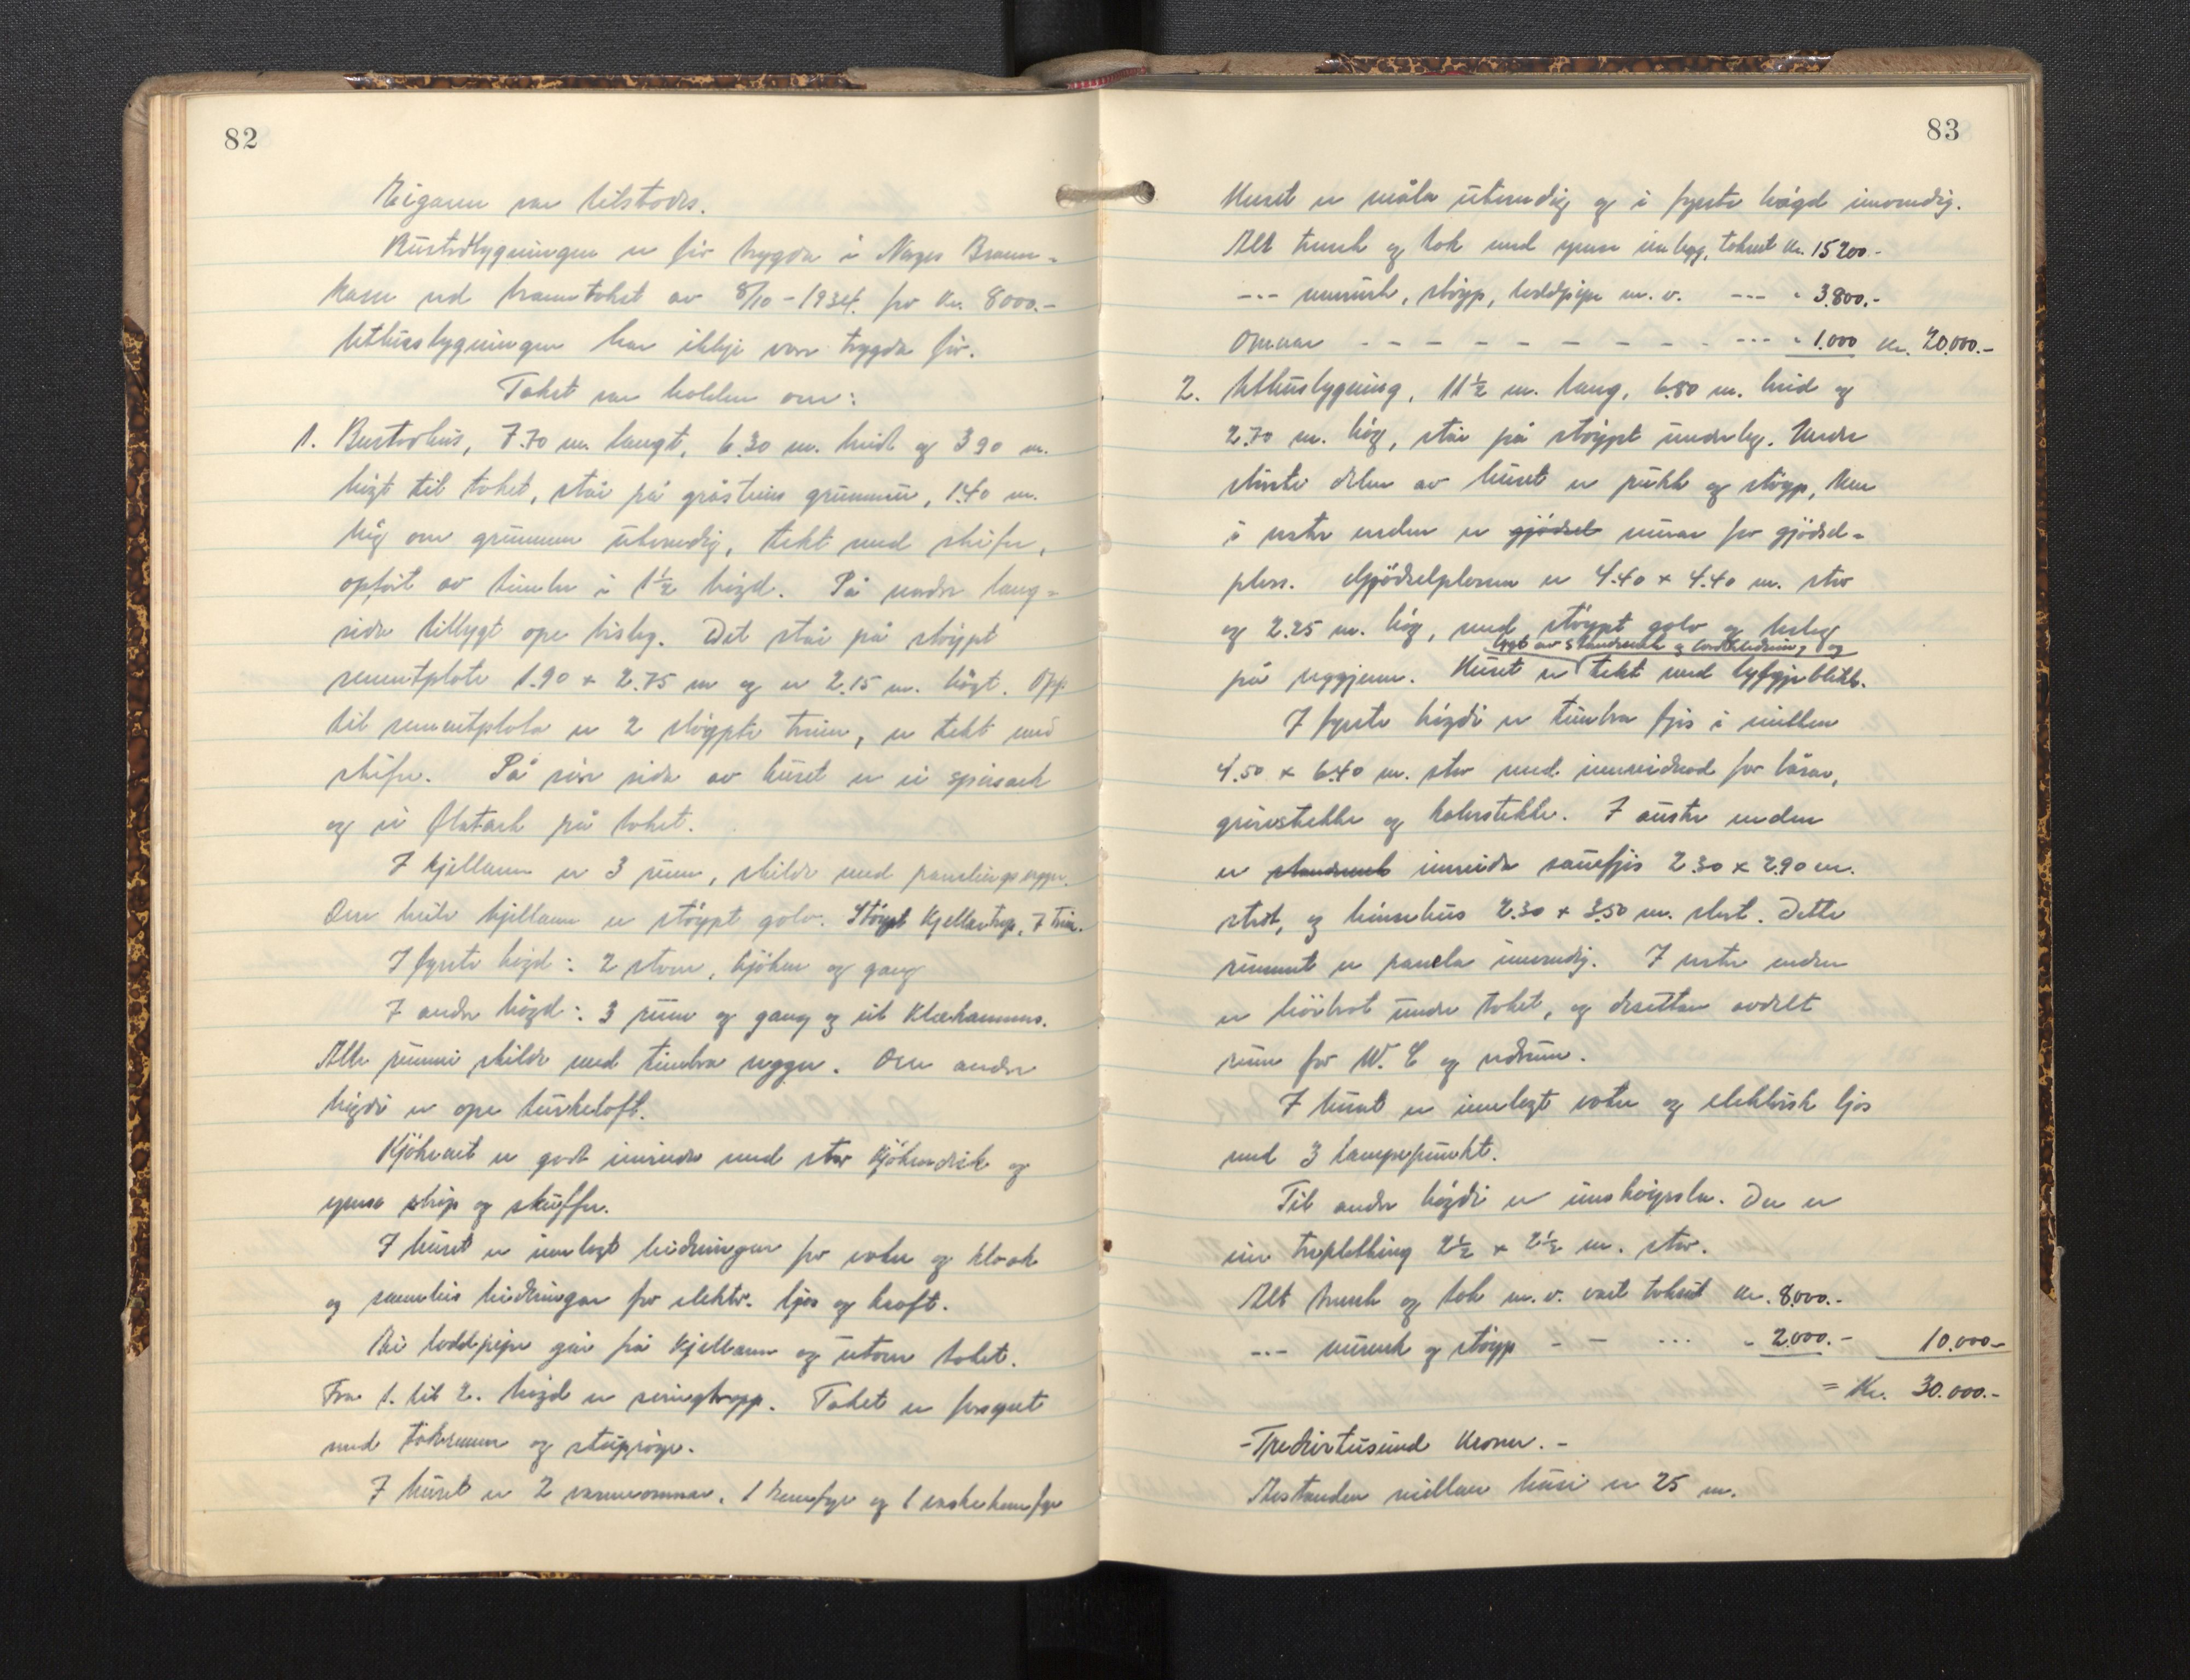 82
Eigaren var tilstades.
Bustadbygningen er fyr trygda i Noregs Brann-
kasse ved branntakst av 8/10-1934 for kr. 8000.-
Uthusbygningen har ikkje vore trygda fyr.
Takst var halden over:
1. Bustadhus, 7.70 m. langt, 6.30 m. breidt og 3.90 m.
högt til taket, står på gråsteins grunnmur, 1.40 m.
hög over grunnen utvendig, tekt med skifer,
opført av timber i 1½ högd. På nordre lang-
sida tilbygt ope bislag. Det står på støypt
sementplate 1.90 x 2.75 m og er 2.15 m. högt. Opp
til sementplata er 2 støypte trinn, er tekt med
skifer. På søre sida av huset er ei spissark
og ei flatark på taket.
I kjellaren er 3 rum, skilde med panelingsvegger.
Over heile kjellaren er støypt golv. Støypt kjellartrap, 7 trin.
I fyrste högd: 2 stover, kjöken og gang
I andre högd: 3 rum og gang og eit klækammers.
Alle rummi skilde med timbra vegger. Over andre
högdi er ope turkeloft.
Kjökenet er godt innreidd med stor kjökendisk og
ymse skåp og skuffer.
I huset er innlagt leidningar for vatn og kloak
og sameleis leidningar for elektr. ljos og kraft.
Ei loddpipe går frå kjellaren og utom taket.
Fra 1. til 2. högd er svingtrapp. Taket er forsynt
med takrenner og stuprøyr.
I huset er 2 varmeomnar, 1 komfyr og 1 vaskekomfyr
83
Huset er måla utvendig og i fyrste högd innvendig.
Alt treverk og tak med ymse innlegg, taksert kr. 15200.-
--- murverk, støyp, loddpipe m.v. --- " 3.800.-
Omnar - - - - - - - - - - --- " 1.000 kr. 20.000.-
2. Uthusbygning, 11½ m. lang, 6.80 m. breid og
2.70 m. hög, står på støypt underlag. Under
største delen av huset er pukk og støyp, men
i vestre enden er gjödsel murar for gjödsel-
plass. Gjödselplassen er 4.40 x 4.40 m. stor
og 2.25 m. hög, med støypt golv og beslag
bygt av standverk og bordkledning, og
på veggjene. Huset er tekt med bylgjeblikk.
I fyrste högdi er timbra fjös i midten
4.50 x 6.40 m. stor med innreidnad for båsar,
grinestekke og kalvstekke. I austre enden
er standverk innreidd sauefjös 2.30 x 2.90 m.
stort, og hönsehus 2.30 x 3.50 m. stort. Dette
rummet er panela innvendig. I vestre enden
er höybrot under taket, og dessuten avdelt
rum for W.C og vedrum.
I huset er innlagt vatn og elektrisk ljos
med 3 lampepunkt.
Til andre högdi er innkøyrsla. Den er
ein treplatting 2½ x 2½ m. stor.
Alt treverk og tak m.v. vart taksert kr. 8.000.-
--- murverk og støyp - - --- " 2.000.- 10.000.-
= Kr. 30.000.-
- Tredivetusund kroner. -
Avstanden millom husi er 25 m.